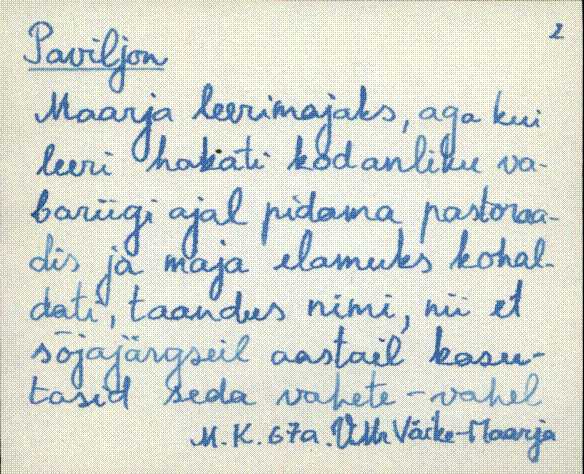 2
Paviljon
Maarja leerimajaks, aga kui
leeri hakati kodanliku va-
bariigi ajal pidama pastoraa-
dis ja maja elamuks kohal-
dati, taandus nimi, nii et
sõjajärgseil aastail kasu-
tasid seda vahete-vahel
M. K. 67a. VMr Väike-Maarja